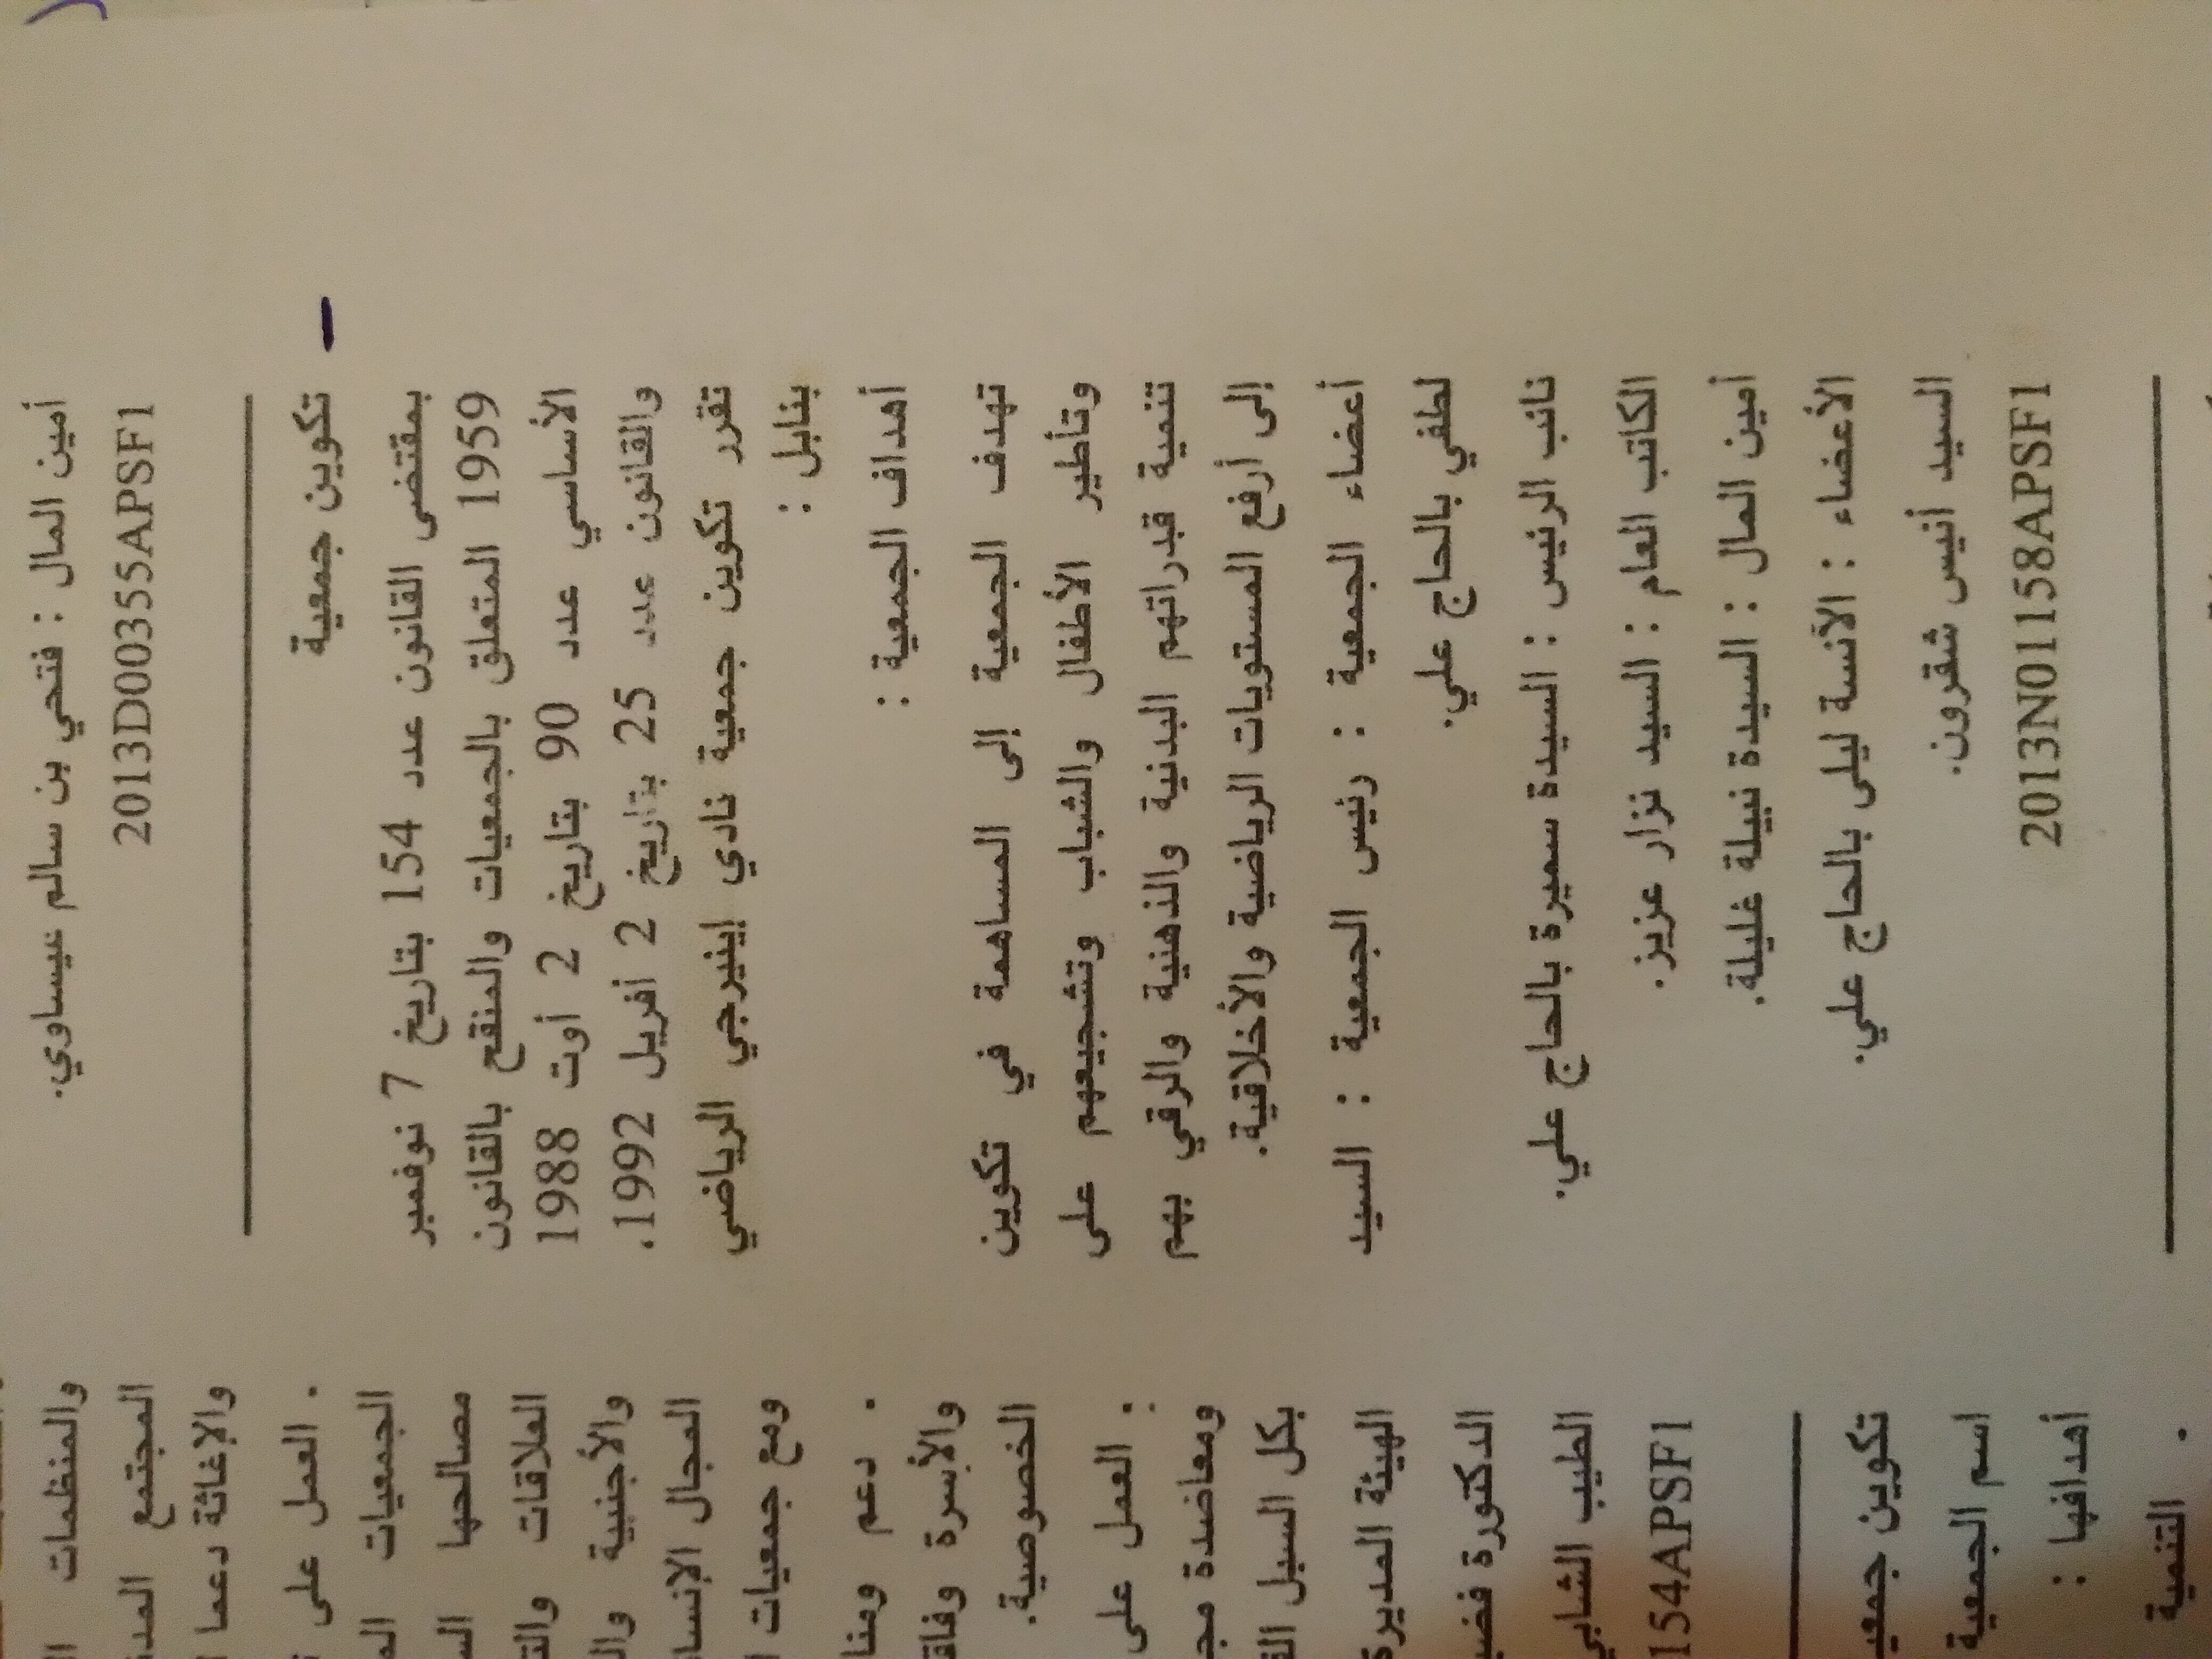 أمين المال : فتحي بن سالم عيساوي.
2013D00355APSF1
تكوين جمعية
بمقتضى القانون عدد 154 بتاريخ 7 نوفمبر
1959 المتعلق بالجمعيات والمنقح بالقانون
الأساسي عدد 90 بتاريخ 2 أوت 1988
والقانون عدد 25 بتاريخ 2 أفريل 1992.
تقرر تكوين جمعية نادي إينيرجي الرياضي
بنابل :
أهداف الجمعية :
تهدف الجمعية إلى المساهمة في تكوين
وتأطير الأطفال والشباب وتشجيعهم على
تنمية قدراتهم البدنية والذهنية والرقي بهم
إلى أرفع المستويات الرياضية والأخلاقية.
أعضاء الجمعية : رئيس الجمعية : السيد
لطفي بالحاج علي.
نائب الرئيس : السيدة سميرة بالحاج علي.
الكاتب العام : السيد نزار عزيز.
أمين المال : السيدة نبيلة غليلة.
الأعضاء : الآنسة ليلى بالحاج علي.
السيد أنيس شقرون.
2013N01158APSF1
والمنظمات
المجتمع
والإغاثة دعما
. العمل على
الجمعيات
مصالحها
العلاقات
والأجنبية
المجال
ومع جمعيات
. دعم
والأسرة
الخصوصية.
. العمل على
ومعاضدة
بكل السبل
الهيئة المديرة
الدكتورة
الطيب الشابي
154APSF1
تكوين
اسم الجمعية
أهدافها :
. التنمية